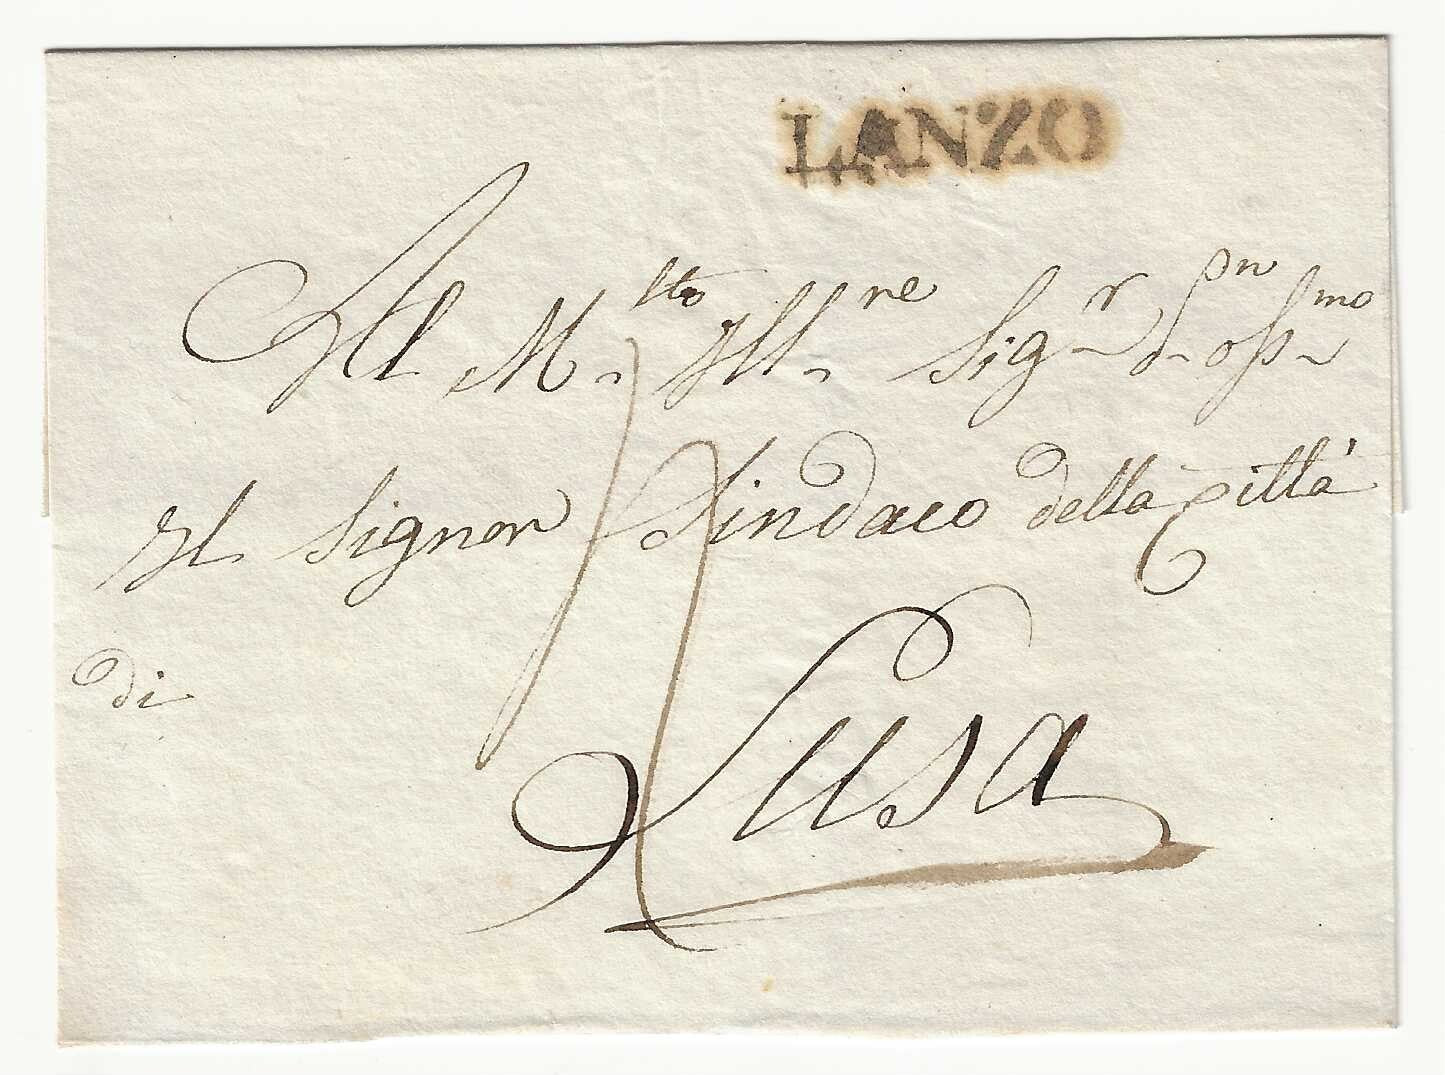 LANZO
All M.lto Ill.re Sig.r P.n oss.mo
Il Signor Sindaco della Città
di
Susa